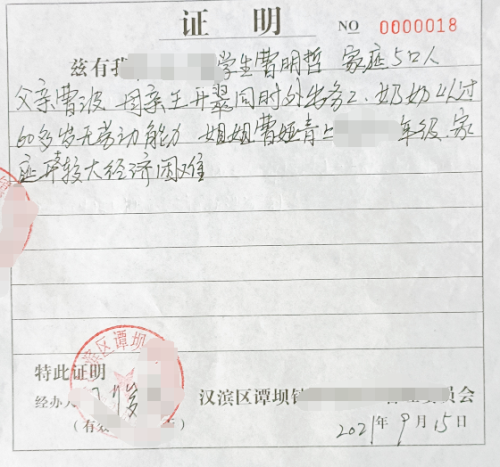 证 明
NO 0000018
兹有我 学生曹明哲 家庭5口人
父亲曹波 母亲王丹翠同时外出务工、奶奶以过
60多岁无劳动能力 姐姐曹娅青上 年级、家
庭 较大经济困难
汉滨区谭坝
特此证明
经办人
汉滨区谭坝镇 委员会
(有效
2021年9月15日